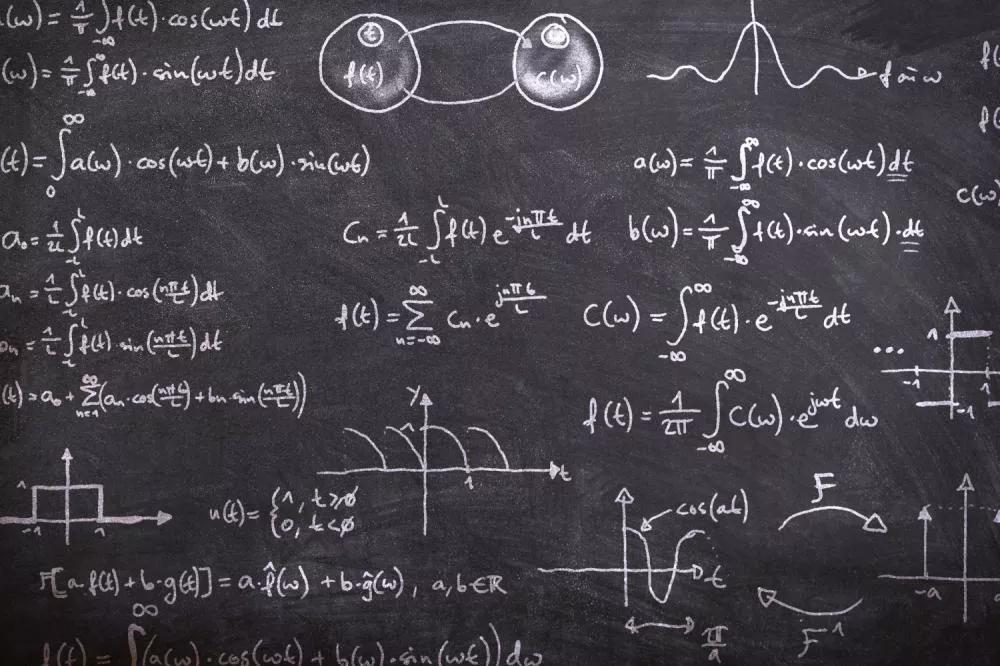 (ω) = 1/π ∫_{-∞} f(t)·cos(ωt) dt
(ω) = 1/π ∫_{-∞}^{∞} f(t)·sin(ωt) dt
t
f(t)
ω
C(ω)
f
(t) = ∫_0^∞ a(ω)·cos(ωt) + b(ω)·sin(ωt)
a(ω) = 1/π ∫_{-∞}^{∞} f(t)·cos(ωt) dt
c(ω)
a₀ = 1/2L ∫_{-L}^{L} f(t) dt
Cn = 1/2L ∫_{-L}^{L} f(t) e^{-jnπt/L} dt
b(ω) = 1/π ∫_{-∞}^{∞} f(t)·sin(ωt)·dt
an = 1/L ∫_{-L}^{L} f(t)·cos(nπt/L) dt
f(t) = Σ_{n=-∞}^{∞} Cn·e^{jnπt/L}
C(ω) = ∫_{-∞}^{∞} f(t)·e^{-jnπt/L} dt
bn = 1/L ∫_{-L}^{L} f(t)·sin(nπt/L) dt
...
1
-1
-1
(t) = a₀ + Σ_{n=1}^{∞} (an·cos(nπt/L) + bn·sin(nπt/L))
y
1
1
t
f(t) = 1/2π ∫_{-∞}^{∞} C(ω)·e^{jωt} dω
1
-1
1
u(t) = {1, t≥0
0, t<0
cos(at)
t
π/a
F
F⁻¹
-a
F[a·f(t) + b·g(t)] = a·f̂(ω) + b·ĝ(ω), a,b∈ℝ
f(t) = ∫^∞ (a(ω)·cos(ωt) + b(ω)·sin(ωt)) dω